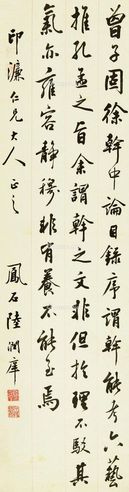 曾子固徐幹中論目錄序謂幹能考六藝
推孔孟之旨余謂幹之文非但於理不駁其
氣亦雍容靜穆非有養不能至焉
印濂仁兄大人正之
鳳石陸潤庠